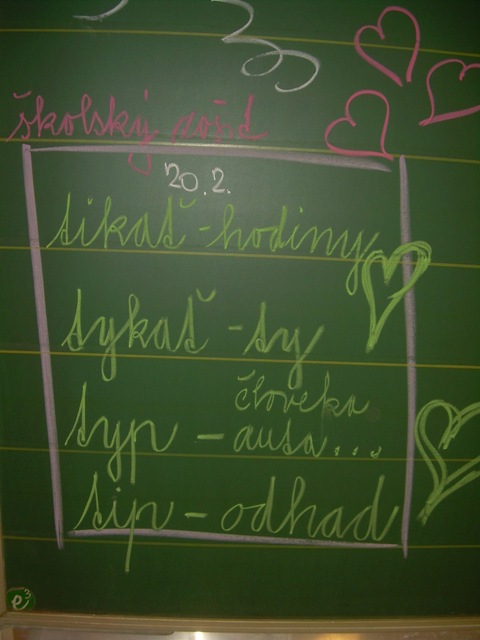 školský
20. 2.
tikať - hodiny
tykať - ty
človeka,
typ - auta...
tip - odhad
e